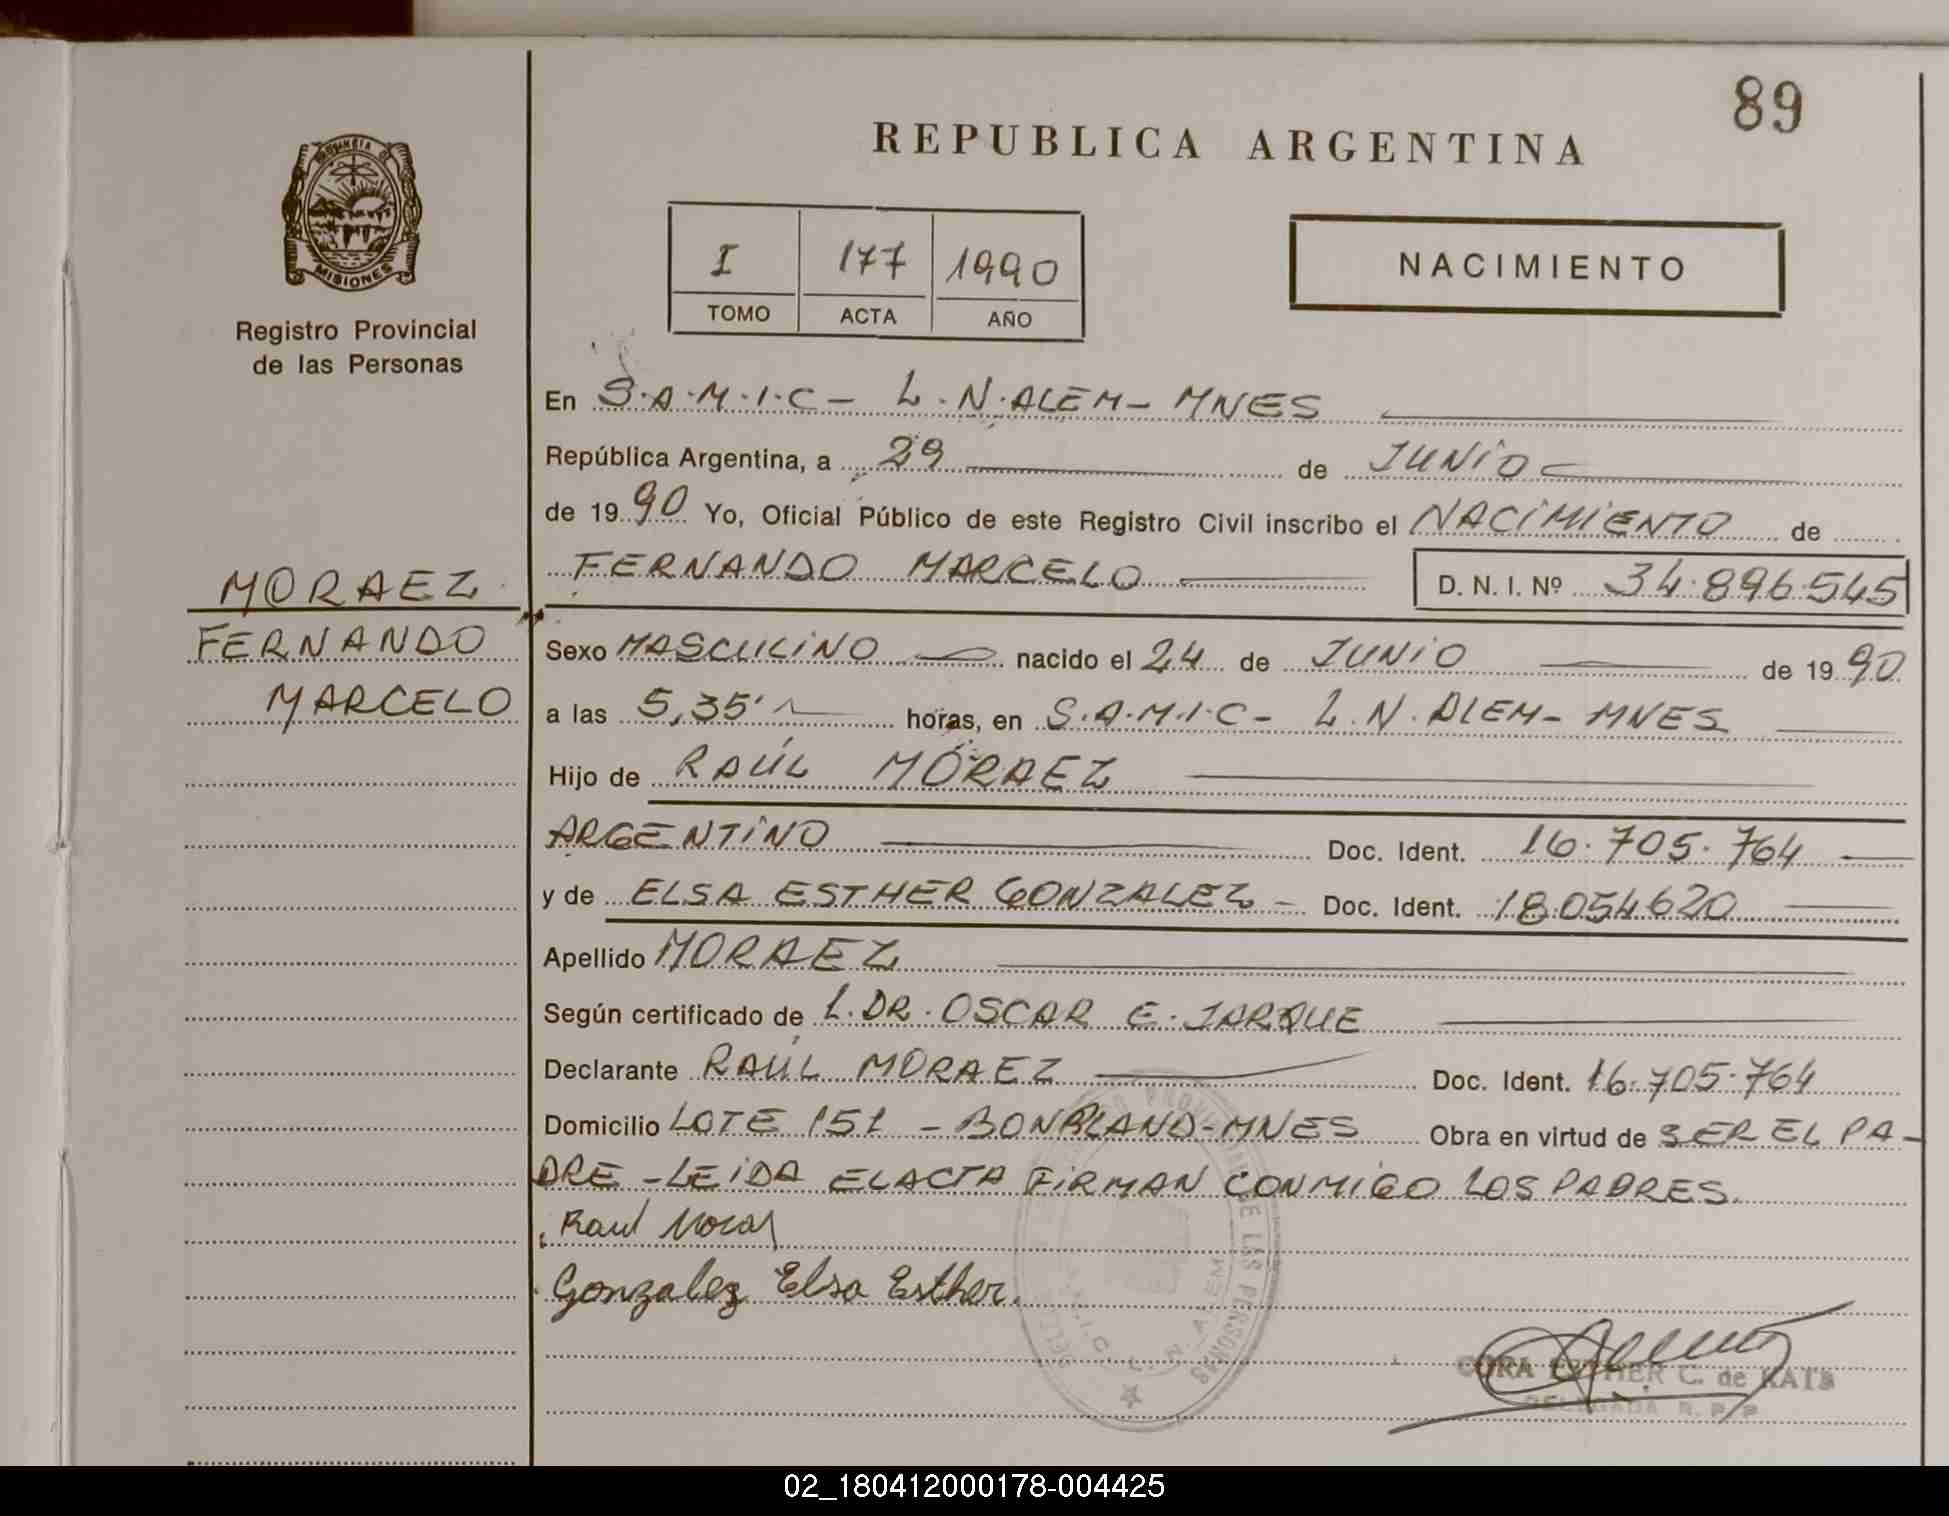 89
REPUBLICA ARGENTINA
MISIONES
Registro Provincial
de las Personas
I 177 1990
TOMO ACTA AÑO
NACIMIENTO
En S.A.M.I.C - L.N.ALEM - MNES
República Argentina, a 29 de JUNIO
de 1990 Yo, Oficial Público de este Registro Civil inscribo el NACIMIENTO de
FERNANDO MARCELO D. N. I. Nº 34.896.545
MORAEZ
FERNANDO
MARCELO
Sexo MASCULINO nacido el 24 de JUNIO de 1990
a las 5,35' horas, en S.A.M.I.C - L.N.ALEM - MNES
Hijo de RAÚL MORAEZ
ARGENTINO Doc. Ident. 16.705.764
y de ELSA ESTHER GONZALEZ - Doc. Ident. 18.054620
Apellido MORAEZ
Según certificado de L. DR. OSCAR E. JARQUE
Declarante RAÚL MORAEZ Doc. Ident. 16.705.764
Domicilio LOTE 151 - BONPLAND - MNES Obra en virtud de SER EL PA-
DRE - LEIDA EL ACTA FIRMAN CONMIGO LOS PADRES.
Raul
Gonzalez Elsa Esther.
CORA ESTHER C. de KATS
DELEGADA R. P. P.
02_180412000178-004425